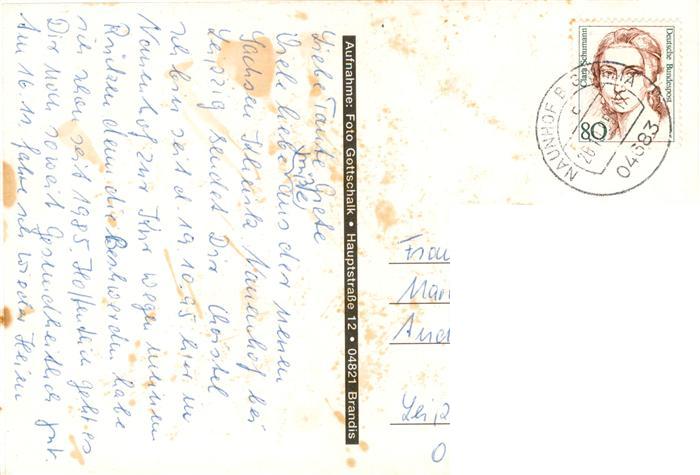 Liebe Tante Grete
Viele liebe Grüße aus der neuen
Sachsen Klinik Naunhof bei
Leipzig sendet Dir Christel
ich bin seit d. 19.10.95 hier in
Naunhof zur Kur wegen meinem
Rücken denn die Beschwerden habe
ich schon seit 1985. Hoffentlich geht es
Dir noch soweit Gesundheitlich gut.
Am 16.11. fahre ich wieder Heim
Aufnahme: Foto Gottschalk • Hauptstraße 12 • 04821 Brandis
Deutsche Bundespost
Clara Schumann
80
NAUNHOF B
04683
Frau
Mar
And
Leipz
0